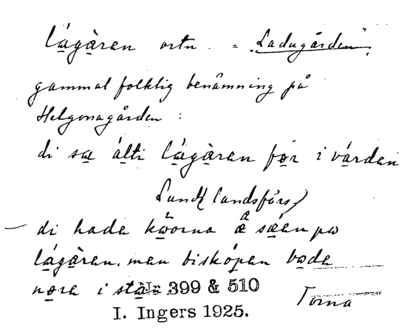 lágàren ortn. = "Ladugården",
gammal folklig benämning på
Helgonagården:
di sa álti lágàren før i várden
Lunds landsförs.
– di hade køorna å sǽen på
lágàren, men biskópen bode
nøre i stà'n. 399 & 510
I. Ingers 1925. Torna